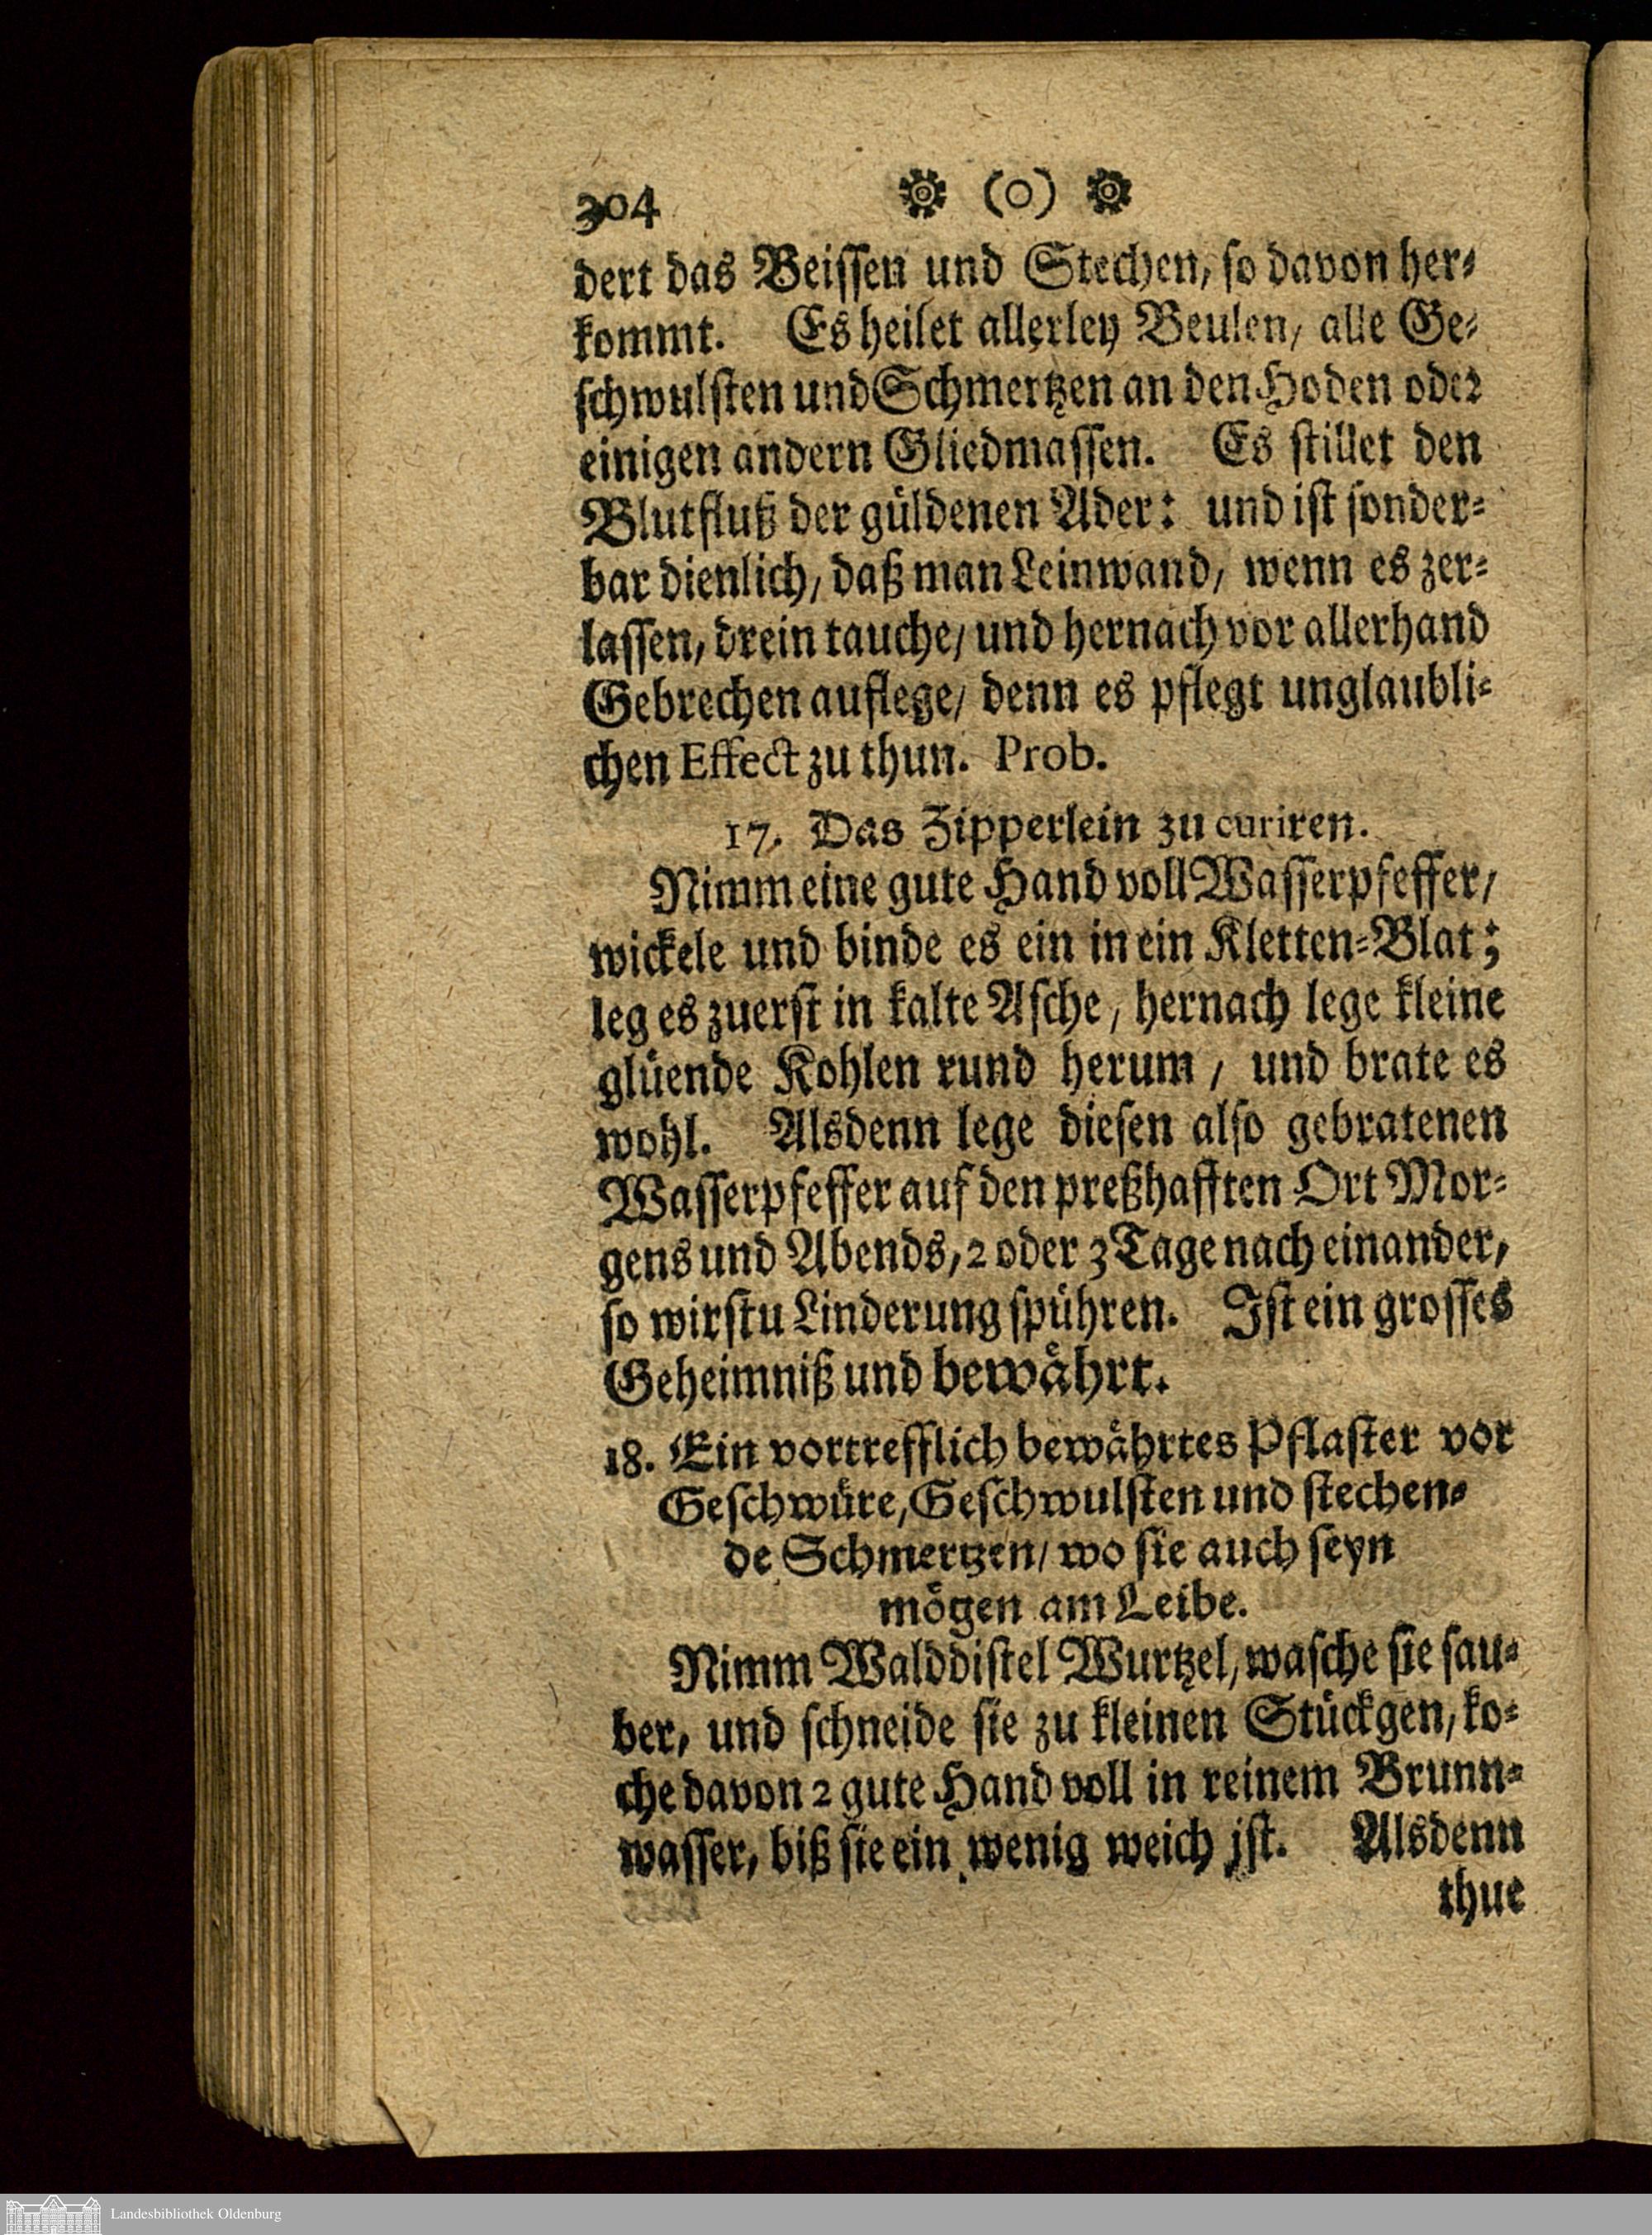 304 (o)
dert das Beissen und Stechen, so davon her-
kommt. Es heilet allerley Beulen/ alle Ge-
schwulsten und Schmertzen an den Hoden oder
einigen andern Gliedmassen. Es stillet den
Blutfluß der güldenen Ader: und ist sonder-
bar dienlich/ daß man Leinwand/ wenn es zer-
lassen, drein tauche/ und hernach vor allerhand
Gebrechen auflege/ denn es pflegt unglaubli-
chen Effect zu thun. Prob.
17. Das Zipperlein zu curiren.
Nimm eine gute Hand voll Wasserpfeffer/
wickele und binde es ein in ein Kletten-Blat;
leg es zuerst in kalte Asche, hernach lege kleine
glüende Kohlen rund herum, und brate es
wohl. Alsdenn lege diesen also gebratenen
Wasserpfeffer auf den preßhafften Ort Mor-
gens und Abends, 2 oder 3 Tage nach einander,
so wirstu Linderung spühren. Ist ein grosses
Geheimniß und bewährt.
18. Ein vortrefflich bewährtes Pflaster vor
Geschwüre, Geschwulsten und stechen-
de Schmertzen/ wo sie auch seyn
mögen am Leibe.
Nimm Walddistel Wurtzel, wasche sie sau-
ber, und schneide sie zu kleinen Stückgen, ko-
che davon 2 gute Hand voll in reinem Brunn-
wasser, biß sie ein wenig weich jst. Alsdenn
thue
Landesbibliothek Oldenburg